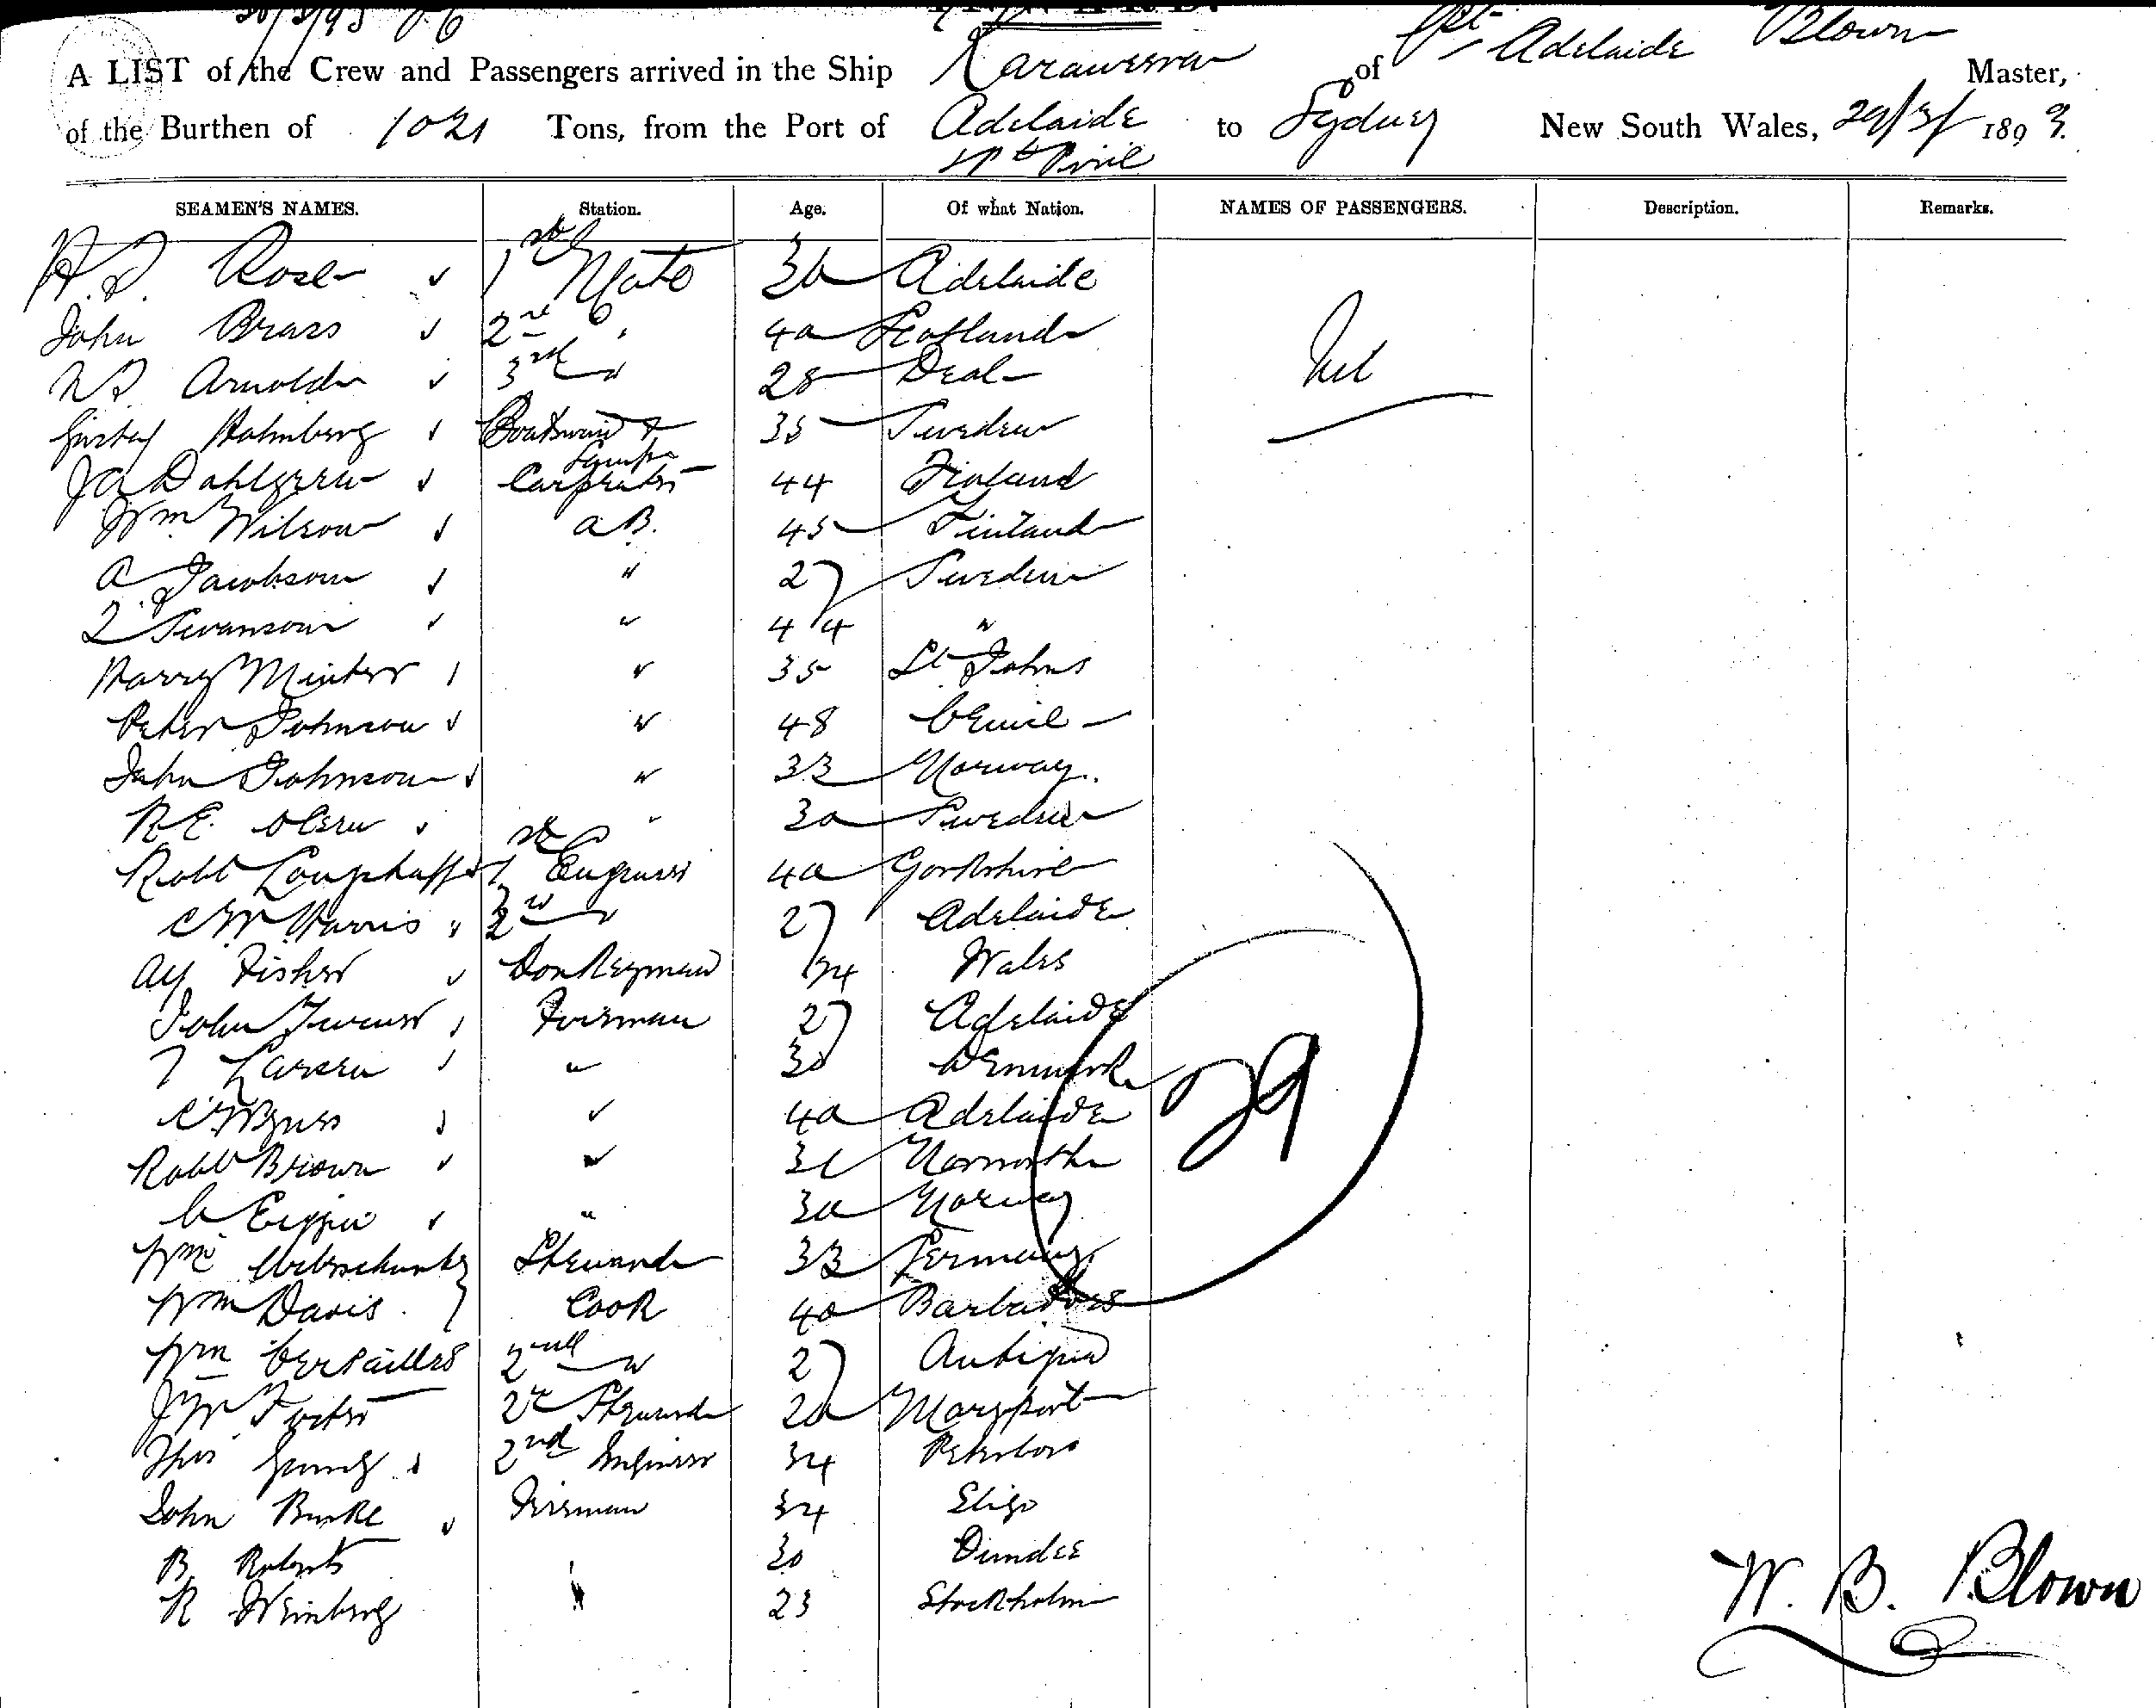 INWARD.
A LIST of the Crew and Passengers arrived in the Ship Karaweera of Adelaide Blown Master,
of the Burthen of 1021 Tons, from the Port of Adelaide to Sydney New South Wales, 29/3/ 1893.
SEAMEN'S NAMES. Station. Age. Of what Nation. NAMES OF PASSENGERS. Description. Remarks.
Rose 1st Mate Adelaide
John Brass 2nd " 40 Scotland Nil
Arnold 3rd " 28 Deal
Gustaf Holmberg Boatswain & Lamps 35 Sweden
J A Dahlgren Carpenter 44 Finland
Wm Wilson A B. 45 Finland
A Jacobson " 27 Sweden
Swanson " 44 "
Harry Minter " 35 St Johns
Peter Johnson " 48
John Johnson " 33 Norway.
R E. Olsen " 30 Sweden
Robt 1st Engineer 40 Yorkshire
C W Harris 2nd " 27 Adelaide
Alf Fisher Donkeyman 34 Wales
John Fireman 27 Adelaide
T Larsen " 30 Denmark
" 40 Adelaide
Robt Brown " 31
" 30 Norway
29
Wm Steward 33 Germany
Wm Davis Cook 40 Barbados
Wm Versailles 2nd " 27 Antigua
J W Foster 2nd Steward 20 Maryport
Thos 2nd Engineer 34 Peterboro
John Burke Fireman 34 Sligo
B. Roberts 30 Dundee
R Weinberg " 23 Stockholm
W. B. Blown